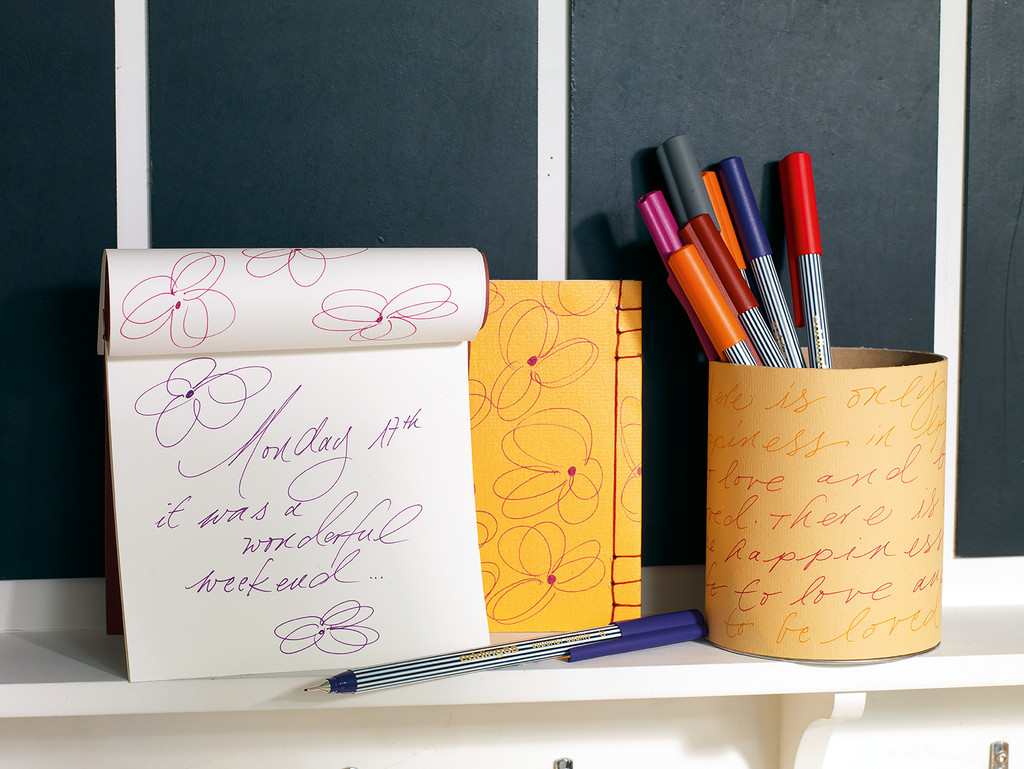 Monday 17th
it was a
wonderful
weekend...
is only
in
love and
There is
happiness
to love an
to be loved